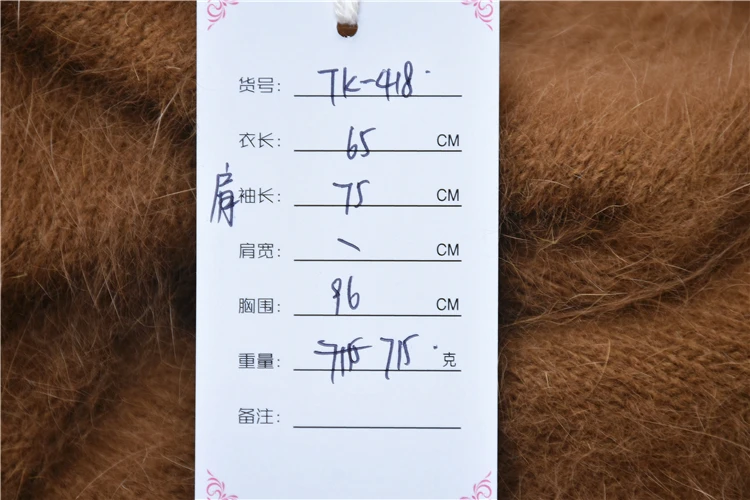 货号: TK-418
衣长: 65 CM
肩袖长: 75 CM
肩宽: \ CM
胸围: 96 CM
重量: 715 715 克
备注: